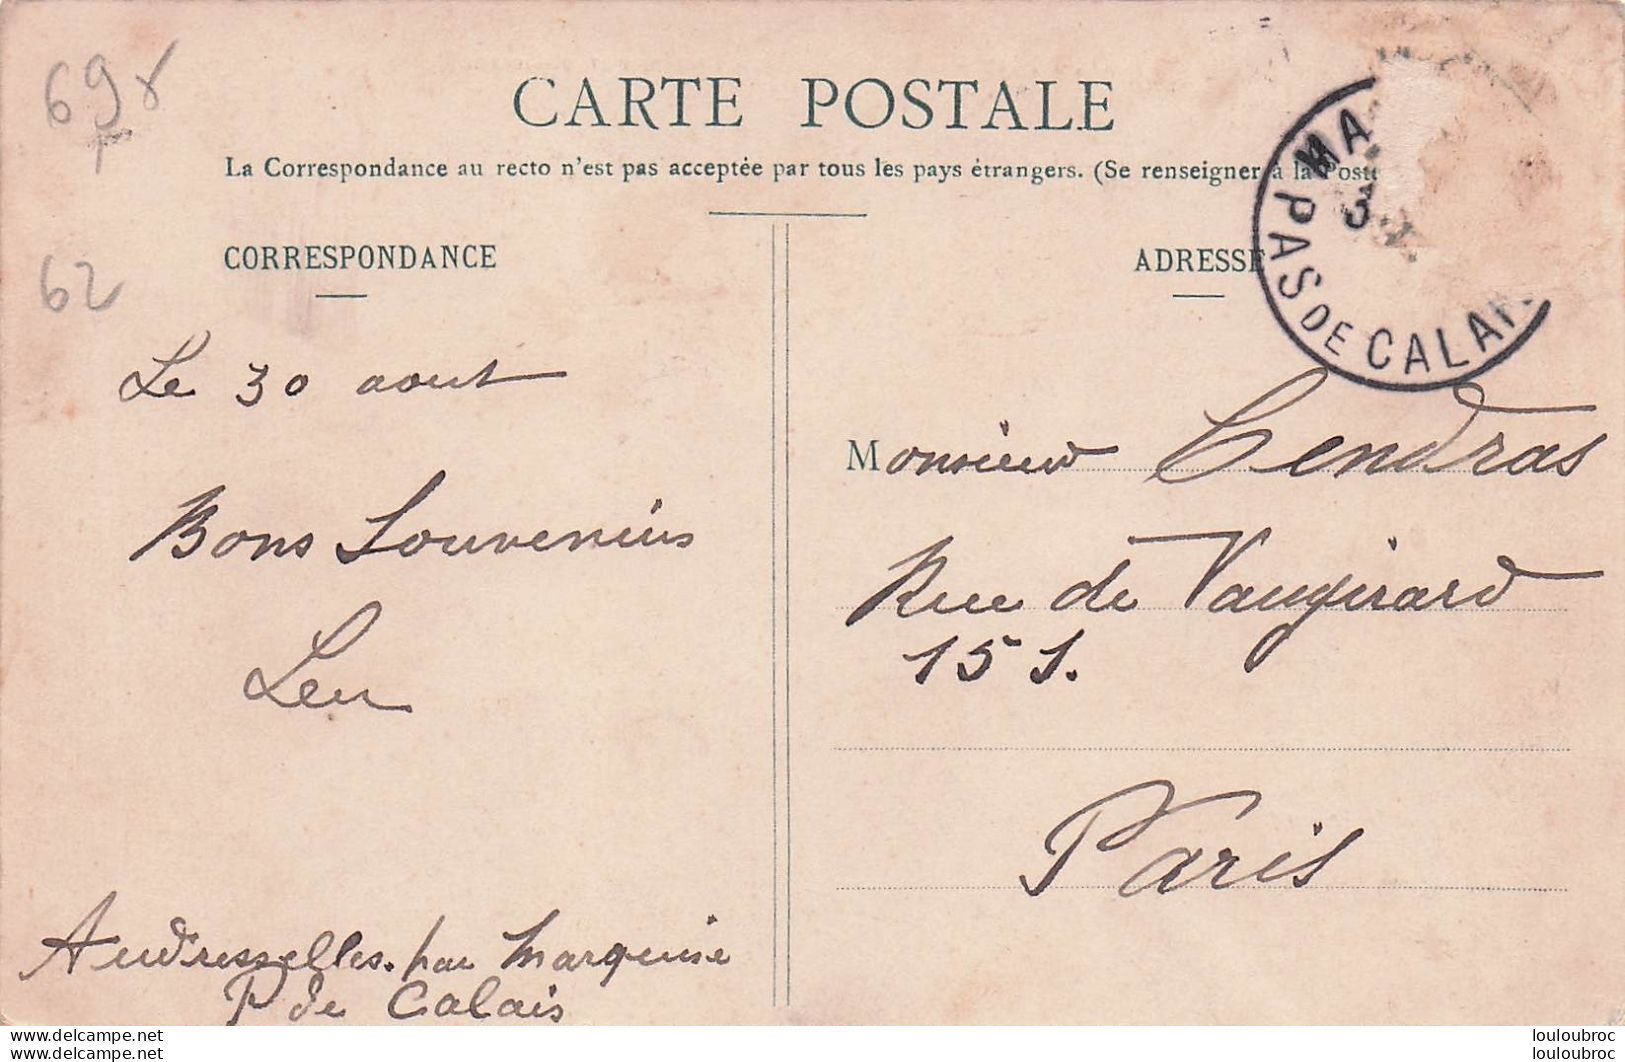 69
62
CARTE POSTALE
La Correspondance au recto n'est pas acceptée par tous les pays étrangers. (Se renseigner à la Poste
CORRESPONDANCE
Le 30 aout
Bons Souvenirs
Leu
Audresselles. par Marquise
P de Calais
ADRESSE
MA
3
PAS DE CALAI
Monsieur Cendras
Rue de Vaugirard
151.
Paris
https://www.delcampe.net
https://www.delcampe.net
louloubroc
louloubroc